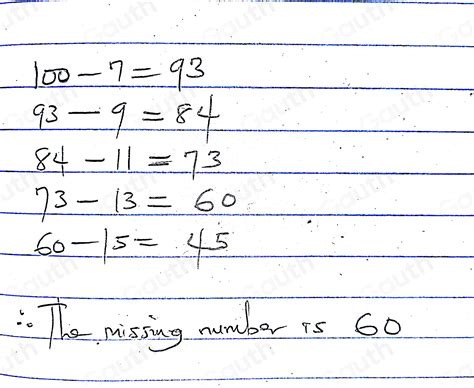 100 - 7 = 93
93 - 9 = 84
84 - 11 = 73
73 - 13 = 60
60 - 15 = 45
∴ The missing number is 60